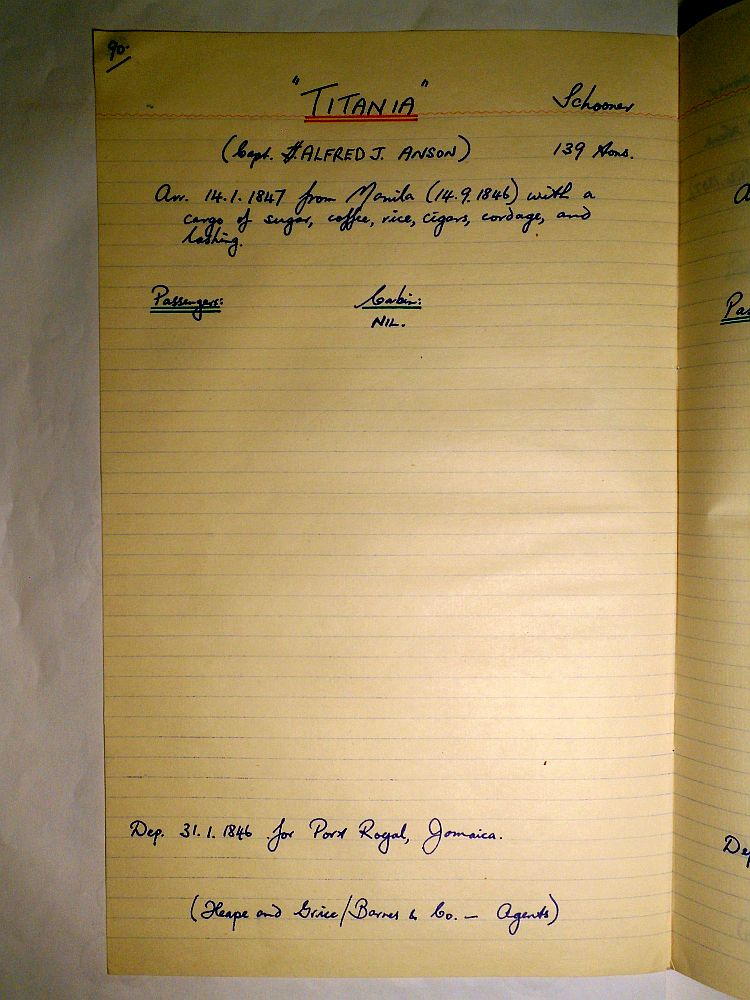 90.
"TITANIA" Schooner
(Capt. ALFRED J. ANSON) 139 tons.
Arr. 14.1.1847 from Manila (14.9.1846) with a
cargo of sugar, coffee, rice, cigars, cordage, and
lashing.
Passengers: Cabin:
NIL.
Dep. 31.1.1846 for Port Royal, Jamaica.
(Heape and Grice/Barnes & Co. — Agents)